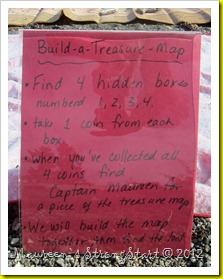 Build-a-Treasure-Map
• Find 4 hidden boxes
numberd 1, 2, 3, 4.
• take 1 coin from each
box.
• when you've collected all
4 coins find
Captain Maureen for
a piece of the treasure map
• We will build the map
together then find the loot
Maureen A StrongStart © 2012